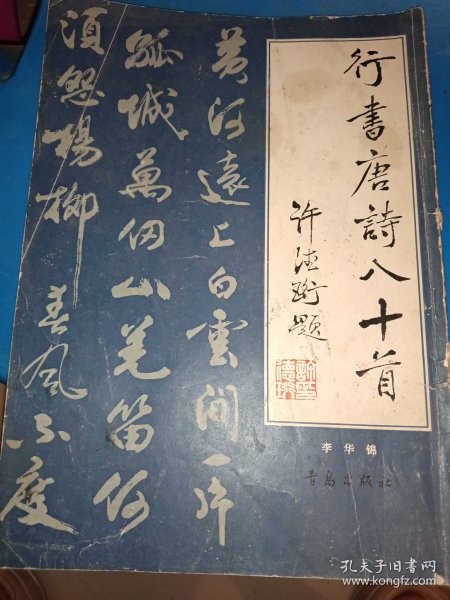 行書唐詩八十首
許德珩題
李华锦
青岛出版社
黄河遠上白雲間一片
孤城萬仞山羌笛何
須怨楊柳春風不度
孔夫子旧书网
www.kongfz.com